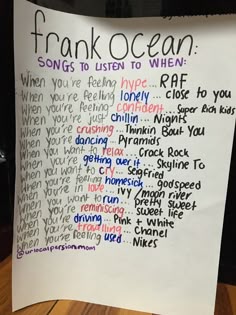 frank ocean:
SONGS TO LISTEN TO WHEN:
When you're feeling hype... RAF
When you're feeling lonely... close to you
When you're feeling confident... Super Rich kids
When you're just chillin... Nights
When you're crushing... Thinkin Bout You
When you're dancing... Pyramids
When you want to relax... Crack Rock
When you're getting over it... Skyline To
When you want to cry... Seigfried
When you're feeling homesick... godspeed
When you're in love... Ivy / moon river
When you want to run... pretty sweet
When you're reminiscing... sweet life
When you're driving... Pink + White
When you're travelling... Chanel
When you're feeling used... Nikes
@urlocalpersianmom